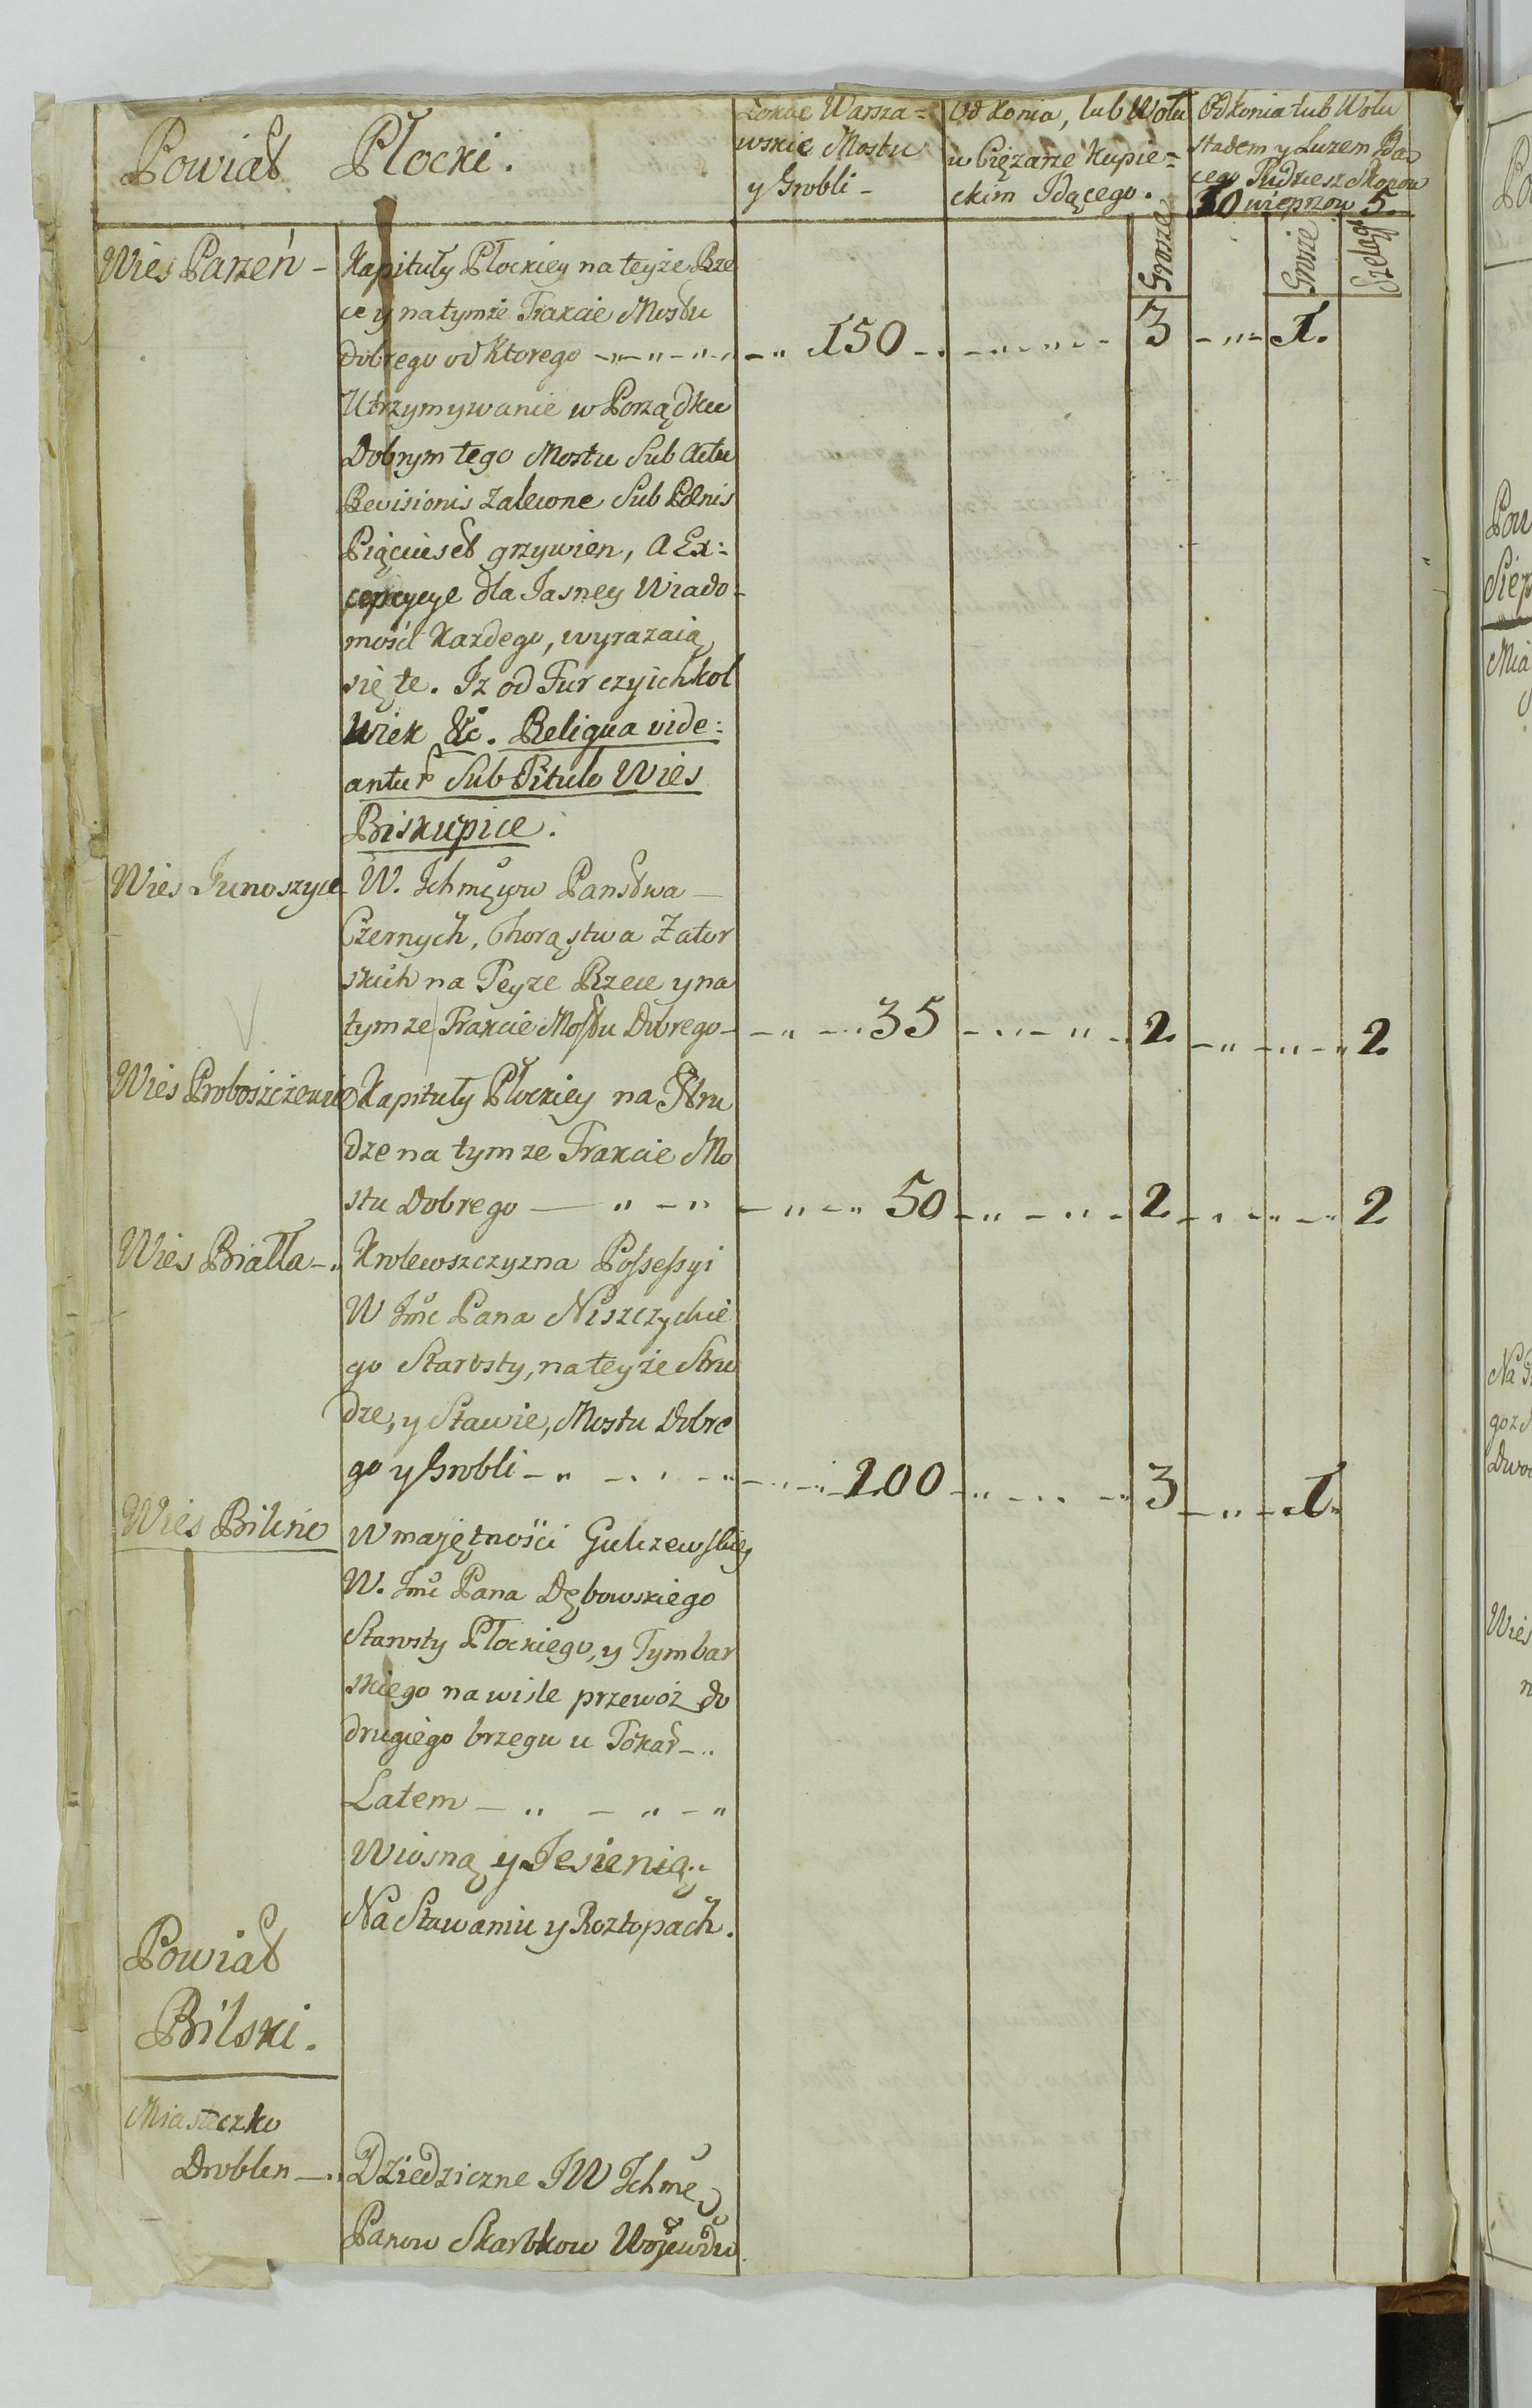 Powiat Płocki.
Łokcie Warsza=
wskie Mostu
y Grobli -
Od Konia, lub Wołu
w Ciężarze Kupie=
ckim Idącego.
Od Konia lub Wołu
stadem y Luzem Ida
cego Tudziesz Skopow
10 wieprzow 5.
Grosze
Grosze
Szelągi
Wies Parzeń -
Kapituły Płockiey na teyże Rze
ce y na tymże Trakcie Mostu
dobrego od Ktorego
150
3
1.
Utrzymywanie w Porządku
Dobrym tego Mostu Sub Actu
Revisionis Zalecone Sub Pœnis
Pięciuset grzywien, a Ex=
cepcye dla Jasney Wiado=
mości Każdego, wyrazaią
się te. Iz od Fur czyichkol
wiek &c. Reliqua vide=
antur Sub Titulo Wies
Biskupice.
Wies Junoszyce
W. Ichmciow Panstwa
Czernych, Chorąstwa Zator
skich na Teyze Rzece y na
tymze Trakcie Mostu Dobrego
35
2
2
Wies Proboszczewice
Kapituły Płockiey na Stru
dze na tymze Trakcie Mo
stu Dobrego
50
2
2
Wies Biała
Krolewszczyzna Possessyi
W Jmc Pana Niszczyckie
go Starosty, na teyże Stru
dze, y Stawie, Mostu Dobre
go y Grobli
100
3
1.
Wies Bilino
W majętności Gulczewskiey
W. Jmc Pana Dębowskiego
Starosty Płockiego, y Tymbar
skiego na wisle przewóz do
drugiego brzegu u Tokar
Latem
Wiosną y Jesienią
Na Stawaniu y Roztopach.
Powiat
Bilski.
Miasteczko
Droblin
Dziedziczne JW Ichmc
Panow Skarbkow Wojewdw